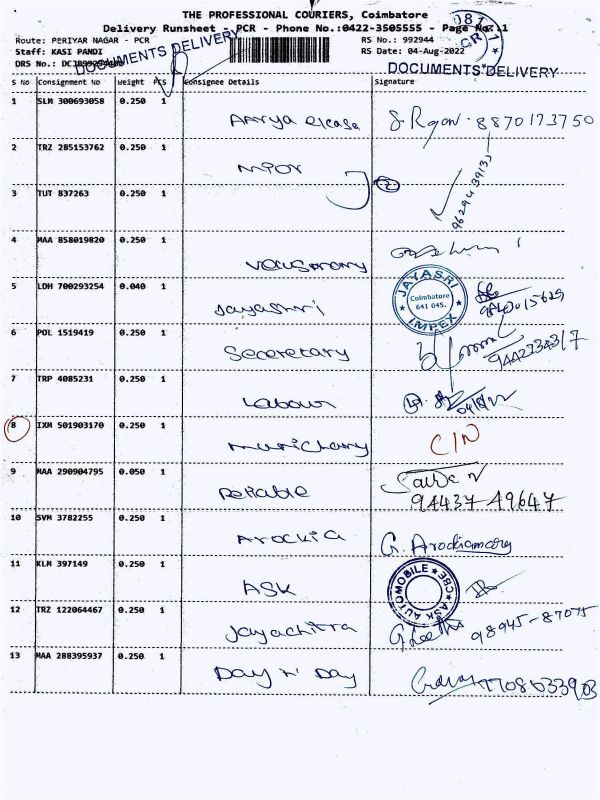 THE PROFESSIONAL COURIERS, Coimbatore
Delivery Runsheet - PCR - Phone No.:0422-3505555 - Page No.:1
Route: PERIYAR NAGAR - PCR RS No.: 992944
Staff: KASI PANDI RS Date: 04-Aug-2022
DRS No.:
DOCUMENTS DELIVERY
DOCUMENTS DELIVERY
S No Consignment No Weight PCS Consignee Details Signature
1 SLM 300693058 0.250 1 8870173750
2 TRZ 285153762 0.250 1
3 TUT 837263 0.250 1
4 MAA 858019820 0.250 1
5 LDH 700293254 0.040 1 Jayashri
JAYASRI IMPEX Coimbatore 641 045.
6 POL 1519419 0.250 1 Seceretary
7 TRP 4085231 0.250 1 Labour
8 IXM 501903170 0.250 1 C/N
9 MAA 290904795 0.050 1 Reliable 94437-49647
10 SVM 3782255 0.250 1 Arockia
11 KLM 397149 0.250 1 ASK
ASK AUTOMOBILE CBE
12 TRZ 122064467 0.250 1 Jayachitra 98945-87075
13 MAA 288395937 0.250 1 Day n' Day